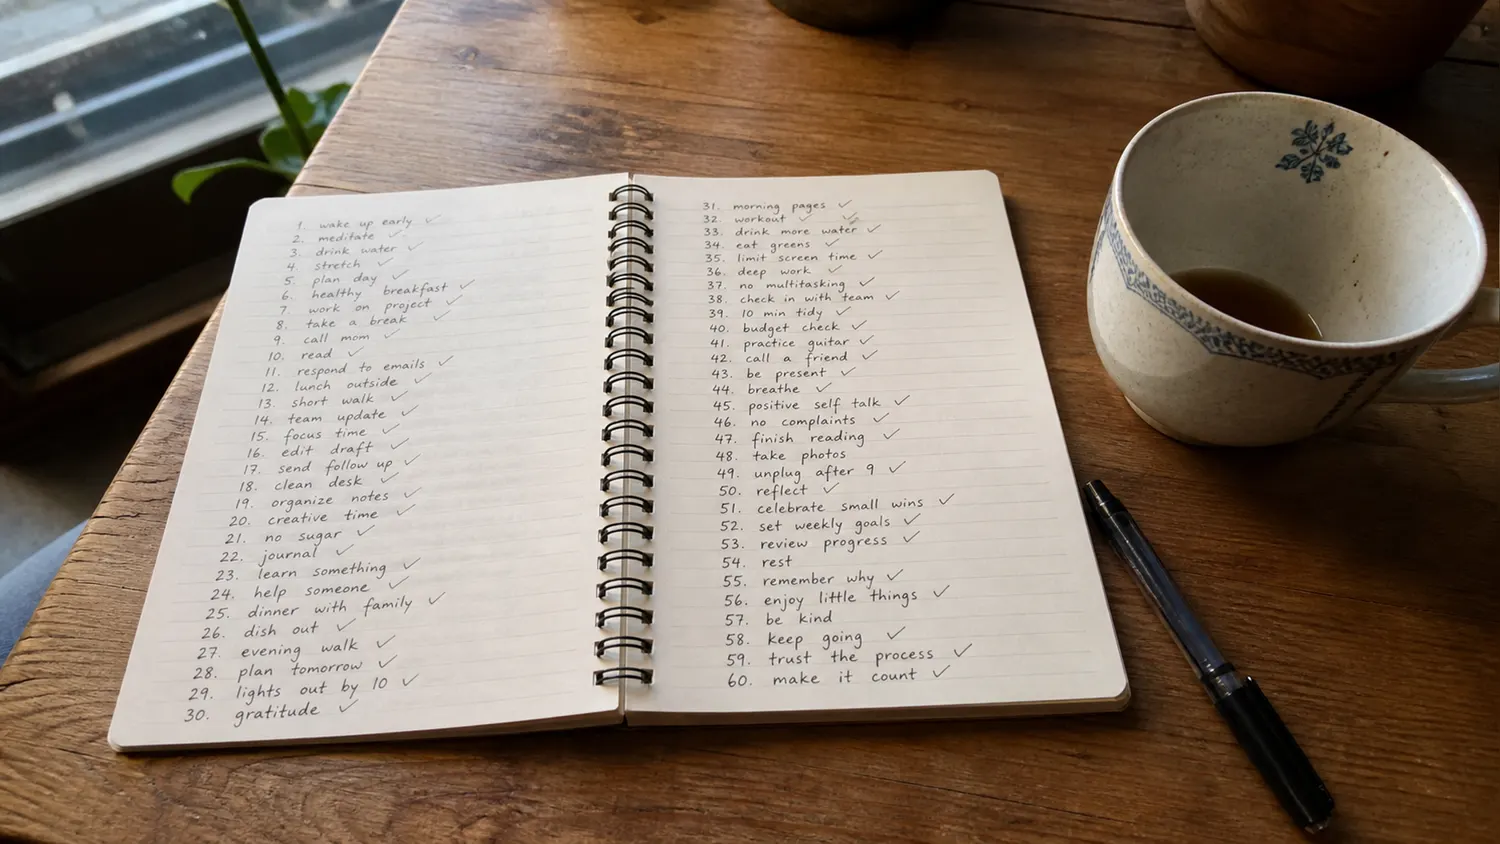 1. wake up early ✓
2. meditate ✓
3. drink water ✓
4. stretch ✓
5. plan day ✓
6. healthy breakfast ✓
7. work on project ✓
8. take a break ✓
9. call mom ✓
10. read ✓
11. respond to emails ✓
12. lunch outside ✓
13. short walk ✓
14. team update ✓
15. focus time ✓
16. edit draft ✓
17. send follow up ✓
18. clean desk ✓
19. organize notes ✓
20. creative time ✓
21. no sugar ✓
22. journal ✓
23. learn something ✓
24. help someone ✓
25. dinner with family ✓
26. dish out ✓
27. evening walk ✓
28. plan tomorrow ✓
29. lights out by 10 ✓
30. gratitude ✓
31. morning pages ✓
32. workout ✓ ✓
33. drink more water ✓
34. eat greens ✓
35. limit screen time ✓
36. deep work ✓
37. no multitasking ✓
38. check in with team ✓
39. 10 min tidy ✓
40. budget check ✓
41. practice guitar ✓
42. call a friend ✓
43. be present ✓
44. breathe ✓
45. positive self talk ✓
46. no complaints ✓
47. finish reading ✓
48. take photos
49. unplug after 9 ✓
50. reflect ✓
51. celebrate small wins ✓
52. set weekly goals ✓
53. review progress ✓
54. rest
55. remember why ✓
56. enjoy little things ✓
57. be kind
58. keep going ✓
59. trust the process ✓
60. make it count ✓